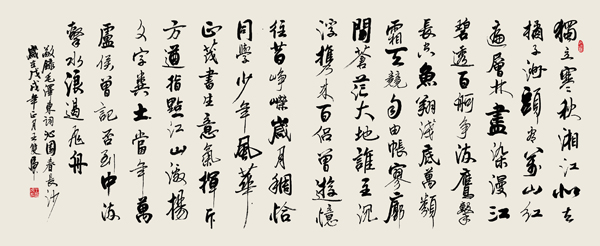 獨立寒秋湘江北去
橘子洲頭看萬山紅
遍層林盡染漫江
碧透百舸爭流鷹擊
長空魚翔淺底萬類
霜天競自由悵寥廓
問蒼茫大地誰主沉
浮攜來百侶曾遊憶
往昔崢嶸歲月稠恰
同學少年風華
正茂書生意氣揮斥
方遒指點江山激揚
文字糞土當年萬
侯曾記否到中流
擊水浪遏飛舟
敬錄毛澤東詞沁園春長沙
歲在戊戌年正月